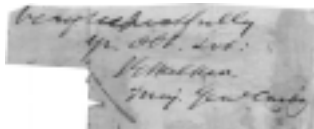 Very respectfully
Yr. Obt. Svt:
Maj. Genl Comdg